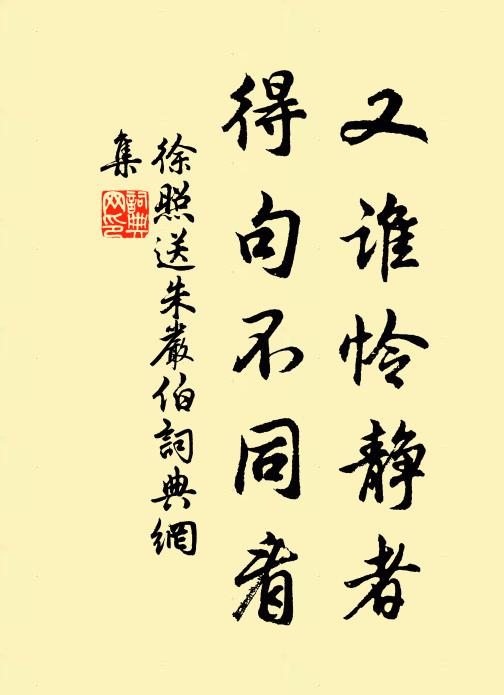 又谁怜静者
得句不同看
徐照送朱嚴伯詞典網
集
詞典
网印